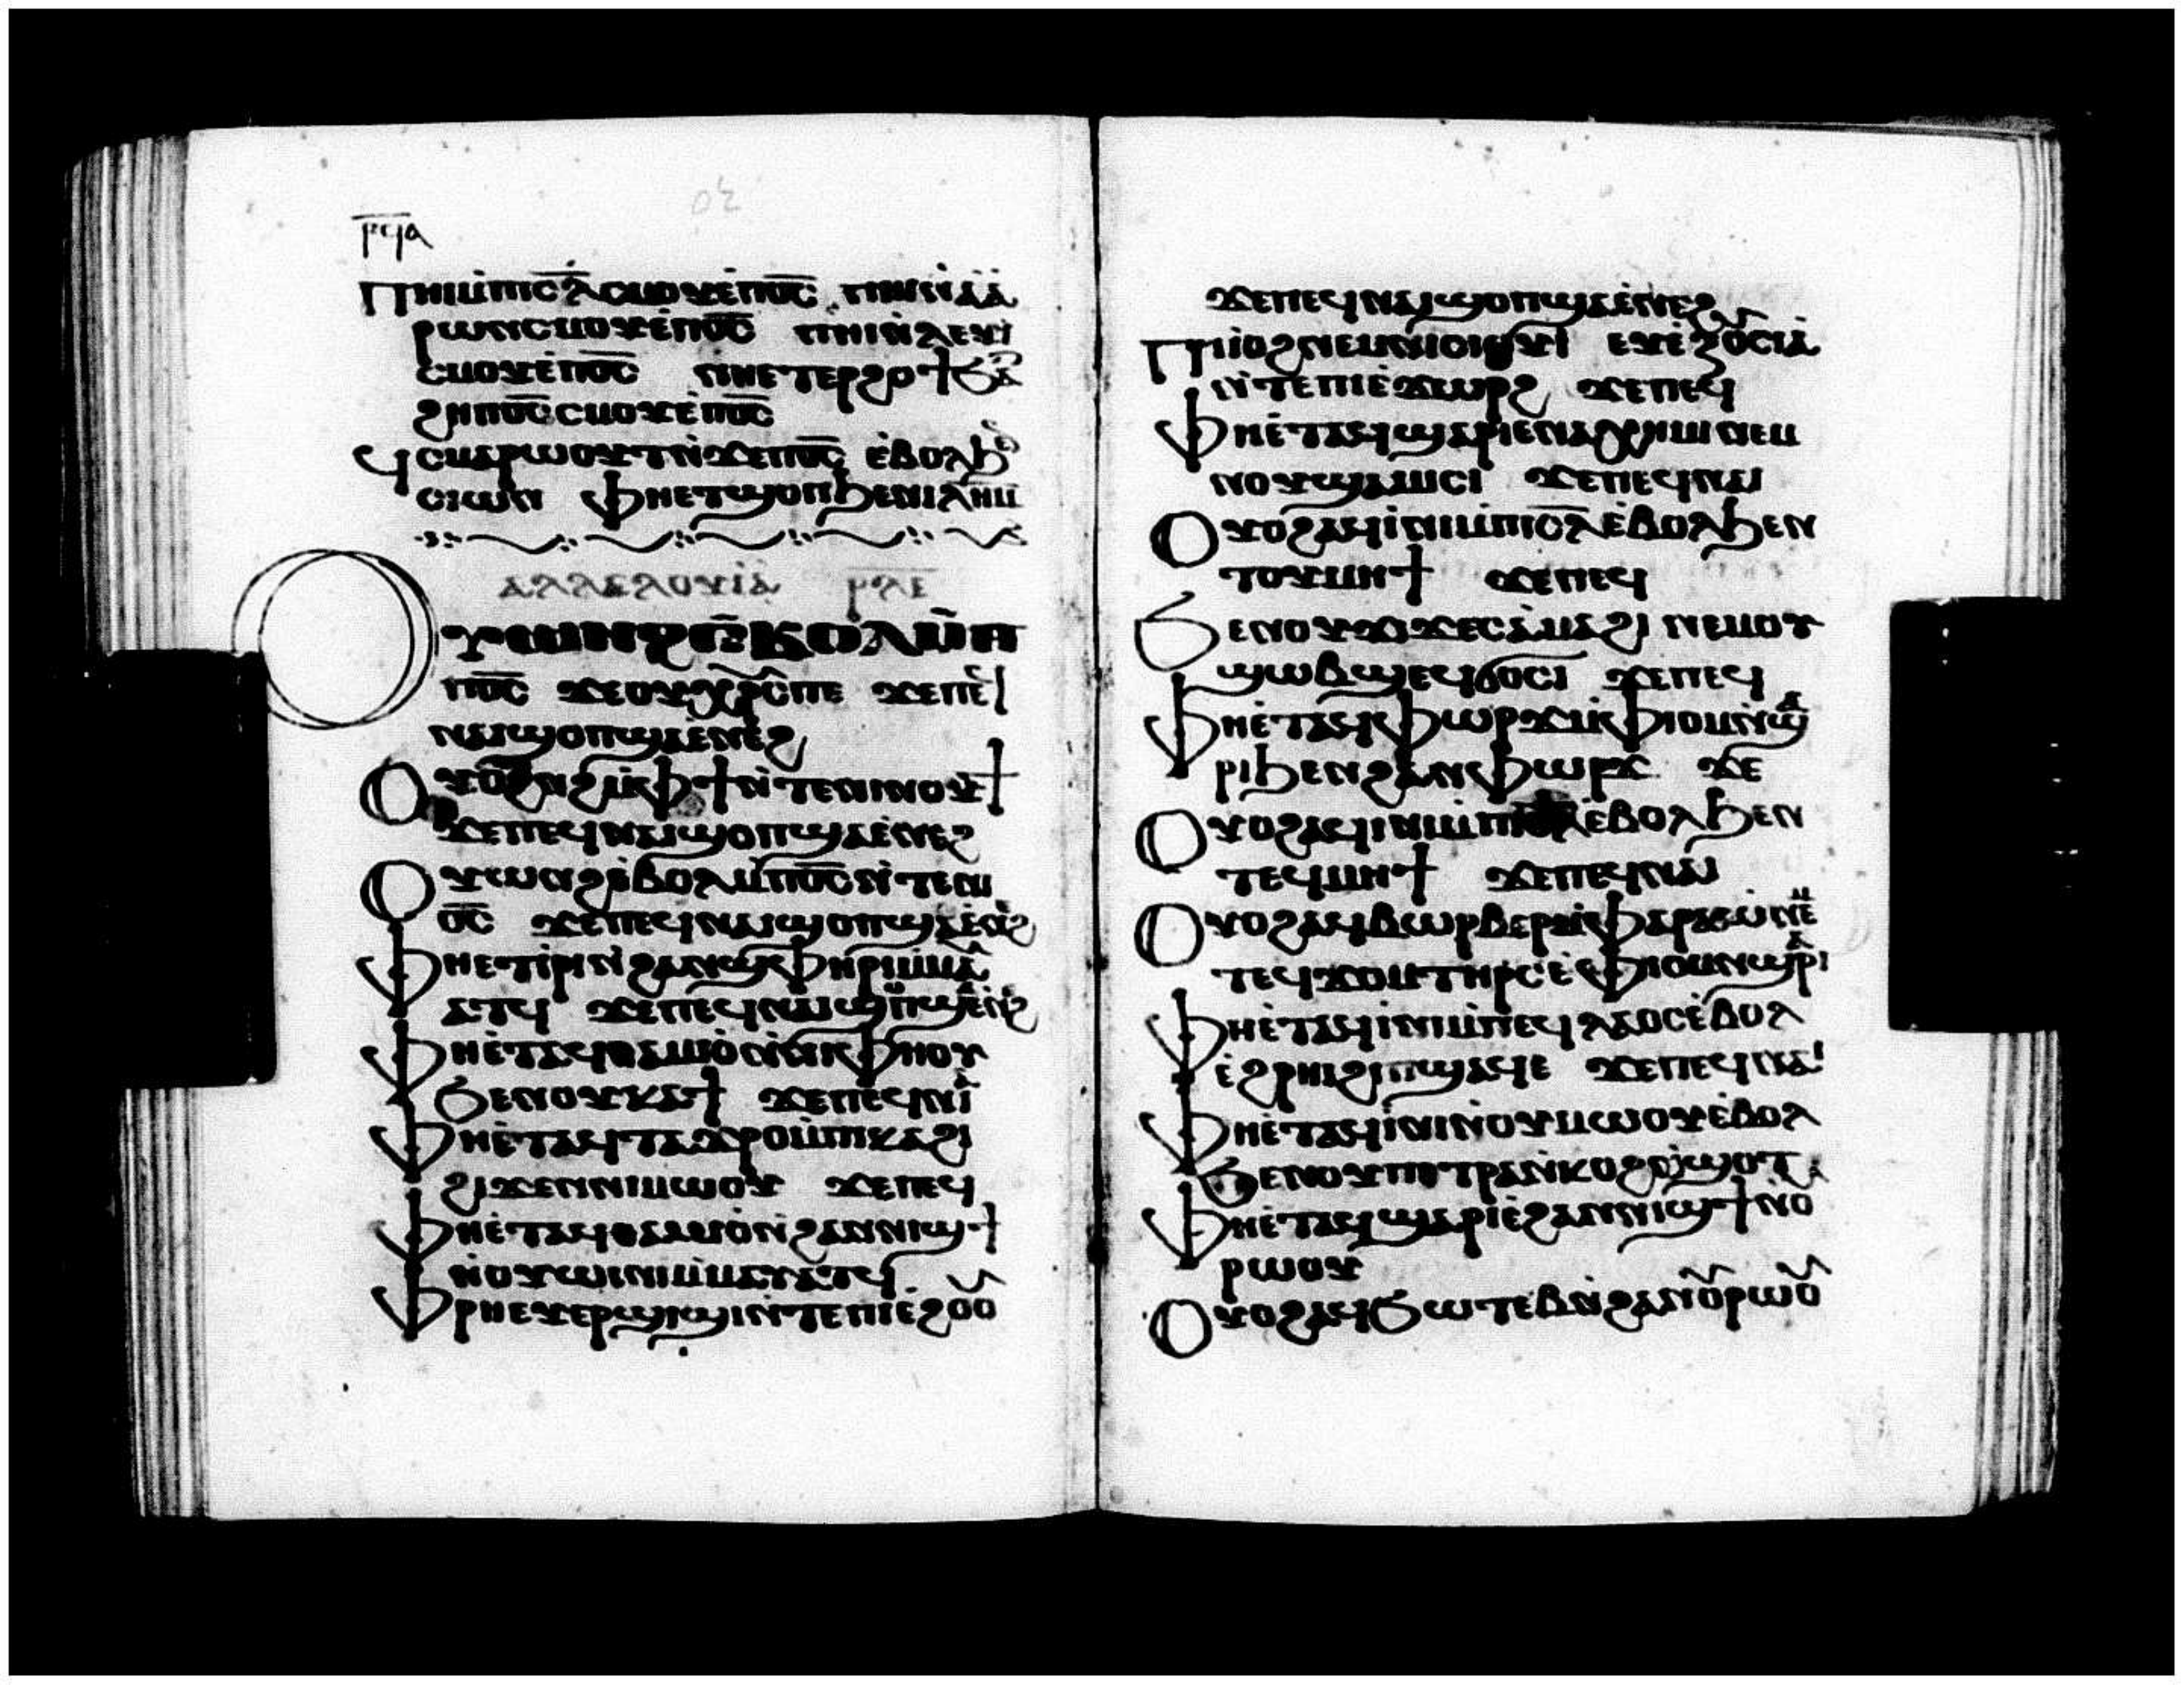 ⲣϥⲁ
ⲡⲏⲓⲙ̀ⲡⲓⲥ̅ⲗ̅ ⲥⲙⲟⲩⲉ̀ⲡⲟ̅ⲥ̅ ⲡⲏⲓⲛ̀ⲁ̀ⲁ
ⲣⲱⲛ ⲥⲙⲟⲩⲉ̀ⲡⲟ̅ⲥ̅ ⲡⲏⲓⲛ̀ⲗⲉⲩⲓ
ⲥⲙⲟⲩⲉ̀ⲡⲟ̅ⲥ̅ ⲛⲏⲉⲧⲉⲣϩⲟϯϧⲁ
ϩⲏⲡⲟ̅ⲥ̅ ⲥⲙⲟⲩⲉ̀ⲡⲟ̅ⲥ̅
ϥⲥⲙⲁⲣⲱⲟⲩⲧ ⲛ̀ϫⲉⲡⲟ̅ⲥ̅ ⲉ̀ⲃⲟⲗϧ
ⲥⲓⲱⲛ ⲫⲏⲉⲧϣⲟⲡϧⲉⲛⲓⲗⲏⲙ
ⲁⲗⲗⲉⲗⲟⲩⲓⲁ̀ ⲣⲗⲉ
ⲟⲩⲱⲛϩⲉⲃⲟⲗⲙ̀ⲡ
ⲡⲟ̅ⲥ̅ ϫⲉⲟⲩⲭⲣⲥⲡⲉ ϫⲉⲡⲉϥ
ⲛⲁⲓϣⲟⲡϣⲁⲉ̀ⲛⲉϩ
ⲟⲩⲱⲛϩⲙ̀ⲫϯⲛ̀ⲧⲉⲛⲓⲛⲟⲩϯ
ϫⲉⲡⲉϥⲛⲁⲓϣⲟⲡϣⲁⲉ̀ⲛⲉϩ
ⲟⲩⲱⲛϩⲉ̀ⲃⲟⲗⲙ̀ⲡⲟ̅ⲥ̅ⲛ̀ⲧⲉⲛⲓ
ⲟ̅ⲥ̅ ϫⲉⲡⲉϥⲛⲁⲓϣⲟⲡϣⲁⲉ̀ⲛⲉϩ
ⲫⲏⲉⲧⲓ̀ⲣⲓⲛ̀ϩⲁⲛϣⲫⲏⲣⲓⲙ̀ⲙⲁⲩ
ⲁⲧϥ ϫⲉⲡⲉϥⲛⲁⲓϣⲟⲡϣⲉ̀ⲛϩ
ⲫⲏⲉ̀ⲧⲁϥⲑⲁⲙⲓⲟ̀ⲛ̀ⲛⲓⲫⲏⲟⲩ
ϧⲉⲛⲟⲩⲕⲁϯ ϫⲉⲡⲉϥⲛⲁⲓ
ⲫⲏⲉ̀ⲧⲁϥⲧⲁϫⲣⲟⲙ̀ⲡⲕⲁϩⲓ
ϩⲓϫⲉⲛⲛⲓⲙⲱⲟⲩ ϫⲉⲡⲉϥ
ⲫⲏⲉ̀ⲧⲁϥⲑⲁⲙⲓⲟ̀ⲛ̀ϩⲁⲛⲛⲓϣϯ
ⲛ̀ⲟⲩⲱⲓⲛⲓⲙ̀ⲙⲁⲩⲁⲧϥ
ⲫⲣⲏⲉⲩⲉⲣϣⲓϣⲓⲛ̀ⲧⲉⲡⲓⲉ̀ϩⲟⲟ
ϫⲉⲡⲉϥⲛⲁⲓϣⲟⲡϣⲁⲉ̀ⲛⲉϩ
ⲡⲓⲓⲟϩⲛⲉⲙⲛⲓⲥⲓⲟⲩⲓ ⲉⲩⲉ̀ⲝⲟⲩⲥⲓⲁ̀
ⲛ̀ⲧⲉⲡⲓⲉ̀ϫⲱⲣϩ ϫⲉⲡⲉϥ
ⲫⲏⲉ̀ⲧⲁϥϣⲁⲣⲓⲉⲛⲁⲭⲏⲙⲓ ⲛⲉⲙ
ⲛⲟⲩϣⲁⲙⲓⲥⲓ ϫⲉⲡⲉϥⲛⲁⲓ
ⲟⲩⲟϩⲁϥⲓ̀ⲛⲓⲙ̀ⲡⲓⲥ̅ⲗ̅ⲉ̀ⲃⲟⲗϧⲉⲛ
ⲧⲟⲩⲙⲏϯ ϫⲉⲡⲉϥ
ϧⲉⲛⲟⲩϫⲓϫⲉⲥⲁ̀ⲙⲁϩⲓ ⲛⲉⲙⲟⲩ
ϣⲱⲃϣⲉϥϭⲟⲥⲓ ϫⲉⲡⲉϥ
ⲫⲏⲉ̀ⲧⲁϥⲫⲱⲣϫⲙ̀ⲫⲓⲟⲙⲛ̀ϣⲁ
ⲣⲓϧⲉⲛϩⲁⲛⲫⲱⲣϫ ϫⲉ
ⲟⲩⲟϩⲁϥⲓⲛⲓⲙ̀ⲡⲓⲥ̅ⲗ̅ⲉⲃⲟⲗϧⲉⲛ
ⲧⲉϥⲙⲏϯ ϫⲉⲡⲉϥⲛⲁⲓ
ⲟⲩⲟϩⲁϥⲃⲱⲣⲃⲉⲣⲙ̀ⲫⲁⲣⲁⲱ̀ⲛⲉⲙ
ⲧⲉϥϫⲟⲙⲧⲏⲣⲥⲉ̀ⲫⲓⲟⲙⲛϣⲁⲣⲓ
ⲫⲏⲉ̀ⲧⲁϥⲓ̀ⲛⲓⲙ̀ⲡⲉϥⲗⲁⲟⲥⲉ̀ⲃⲟⲗ
ⲉ̀ϩⲣⲏⲓϩⲓⲡϣⲁϥⲉ ϫⲉⲡⲉϥⲛⲁⲓ
ⲫⲏⲉ̀ⲧⲁϥⲓ̀ⲛⲓⲛ̀ⲟⲩⲙⲱⲟⲩⲉ̀ⲃⲟⲗ
ϧⲉⲛⲟⲩⲡⲉⲧⲣⲁⲛ̀ⲕⲟϩⲛ̀ϣⲟⲧ
ⲫⲏⲉ̀ⲧⲁϥϣⲁⲣⲓⲉ̀ϩⲁⲛⲛⲓϣϯⲛ̀ⲟ
ⲣⲱⲟⲩ
ⲟⲩⲟϩⲁϥϧⲱⲧⲉⲃⲛ̀ϩⲁⲛⲟⲩⲣⲱⲟⲩ